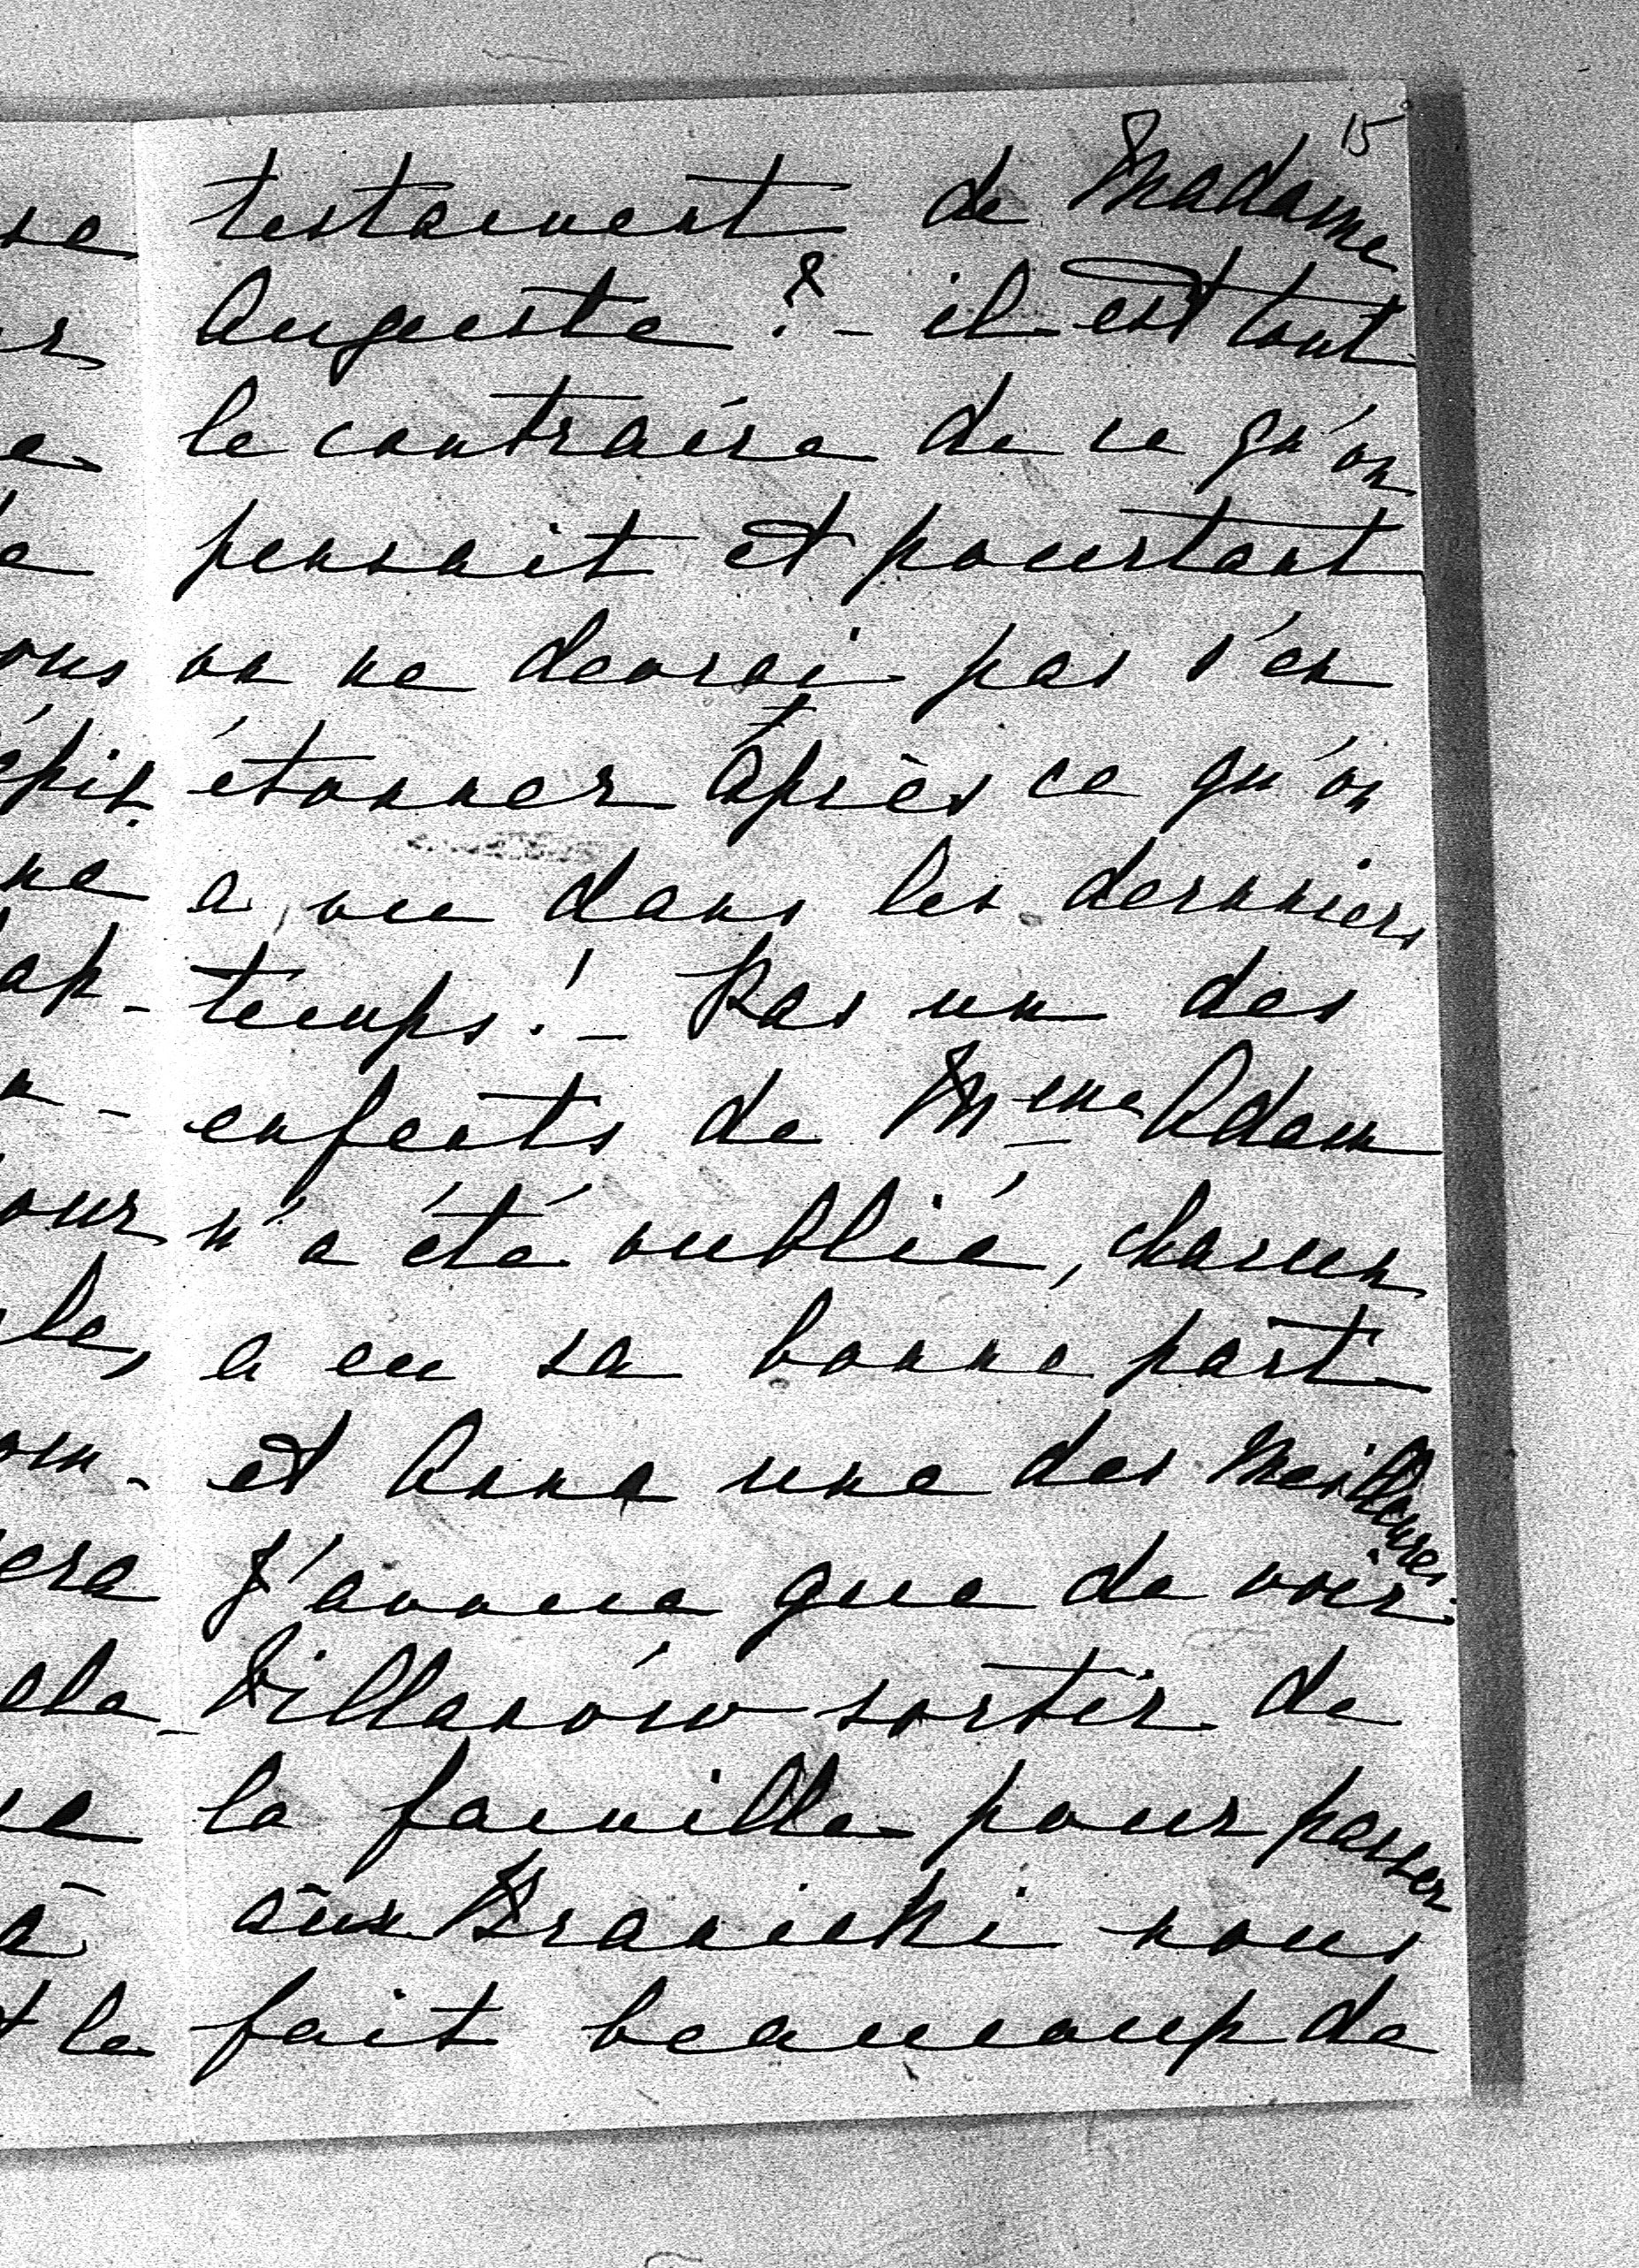 15
testament de Madame
Auguste ? - il est tout
le contraire de ce qu'on
pensait et pourtant
on ne devrai pas s'en
étonner après ce qu'on
a vu dans les derniers
temps ! - Pas un des
enfents de Mme Adam
n'a été oublié, chacun
a eu sa bonne part
et Anna une des meilleures
J'avoue que de voir
Villanów sortir de
la famille pour passer
aux Branicki nous
fait beaucoup de